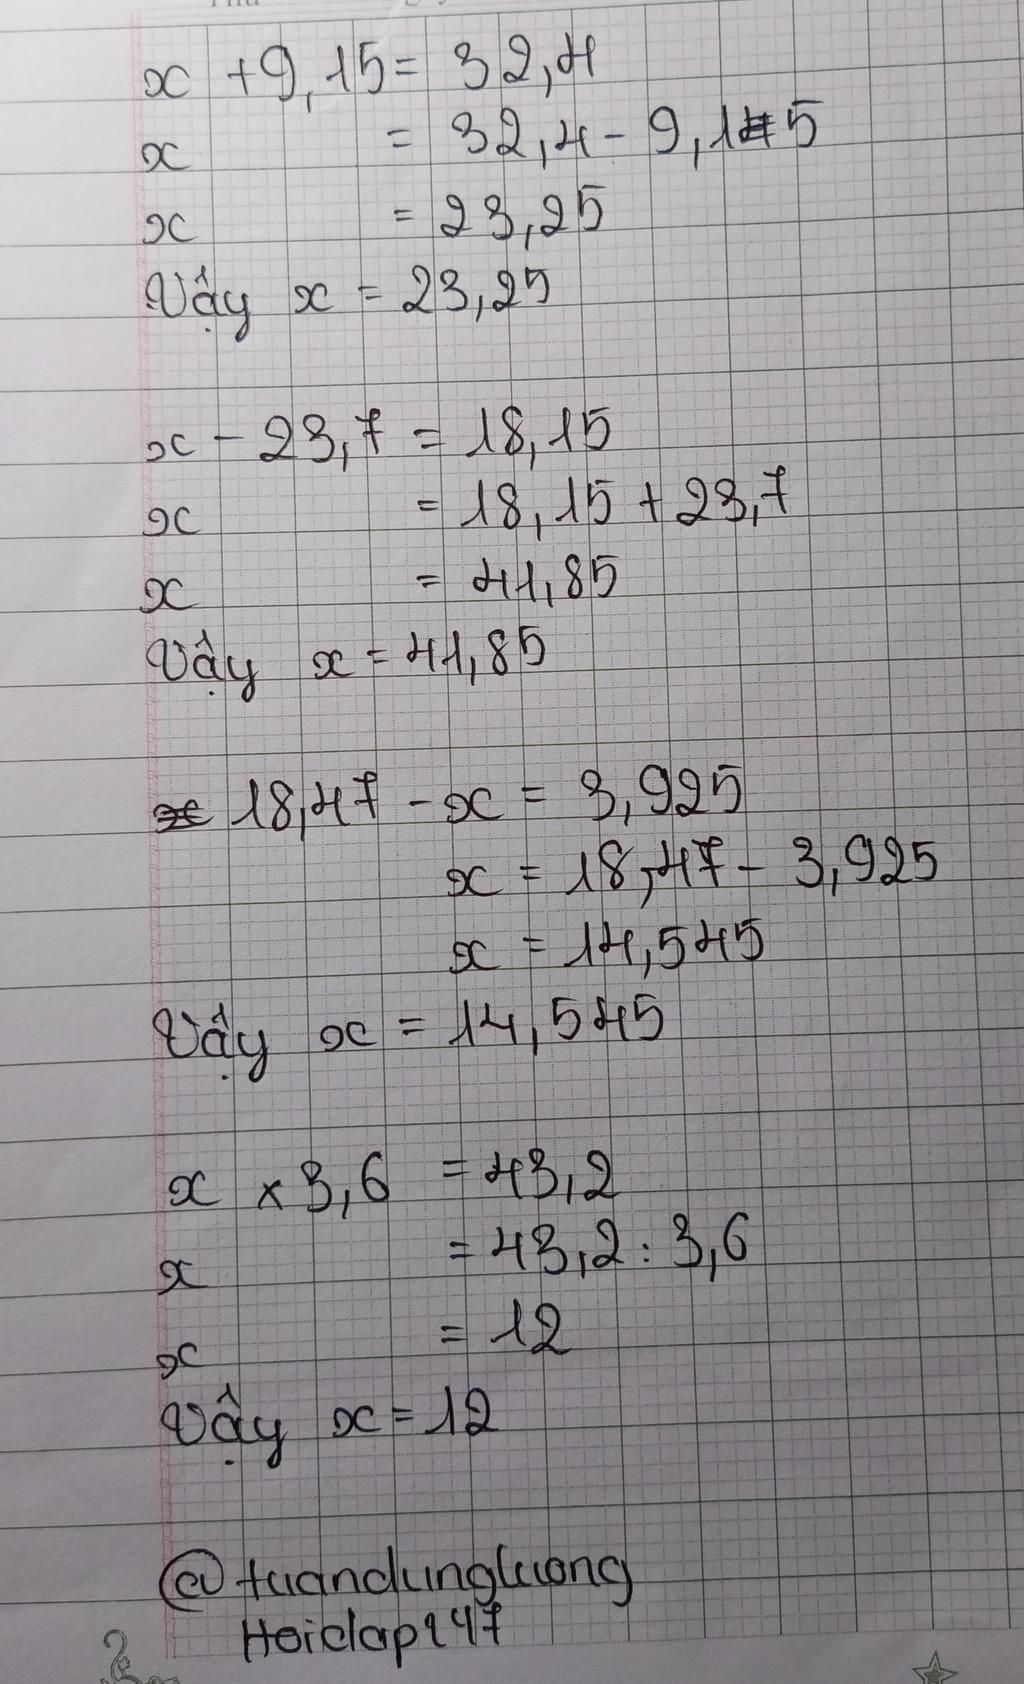 x + 9,15 = 32,4
x = 32,4 - 9,15
x = 23,25
Vậy x = 23,25
x - 23,7 = 18,15
x = 18,15 + 23,7
x = 41,85
Vậy x = 41,85
18,47 - x = 3,925
x = 18,47 - 3,925
x = 14,545
Vậy x = 14,545
x × 3,6 = 43,2
x = 43,2 : 3,6
x = 12
Vậy x = 12
@tuandungluong
Hoidap247